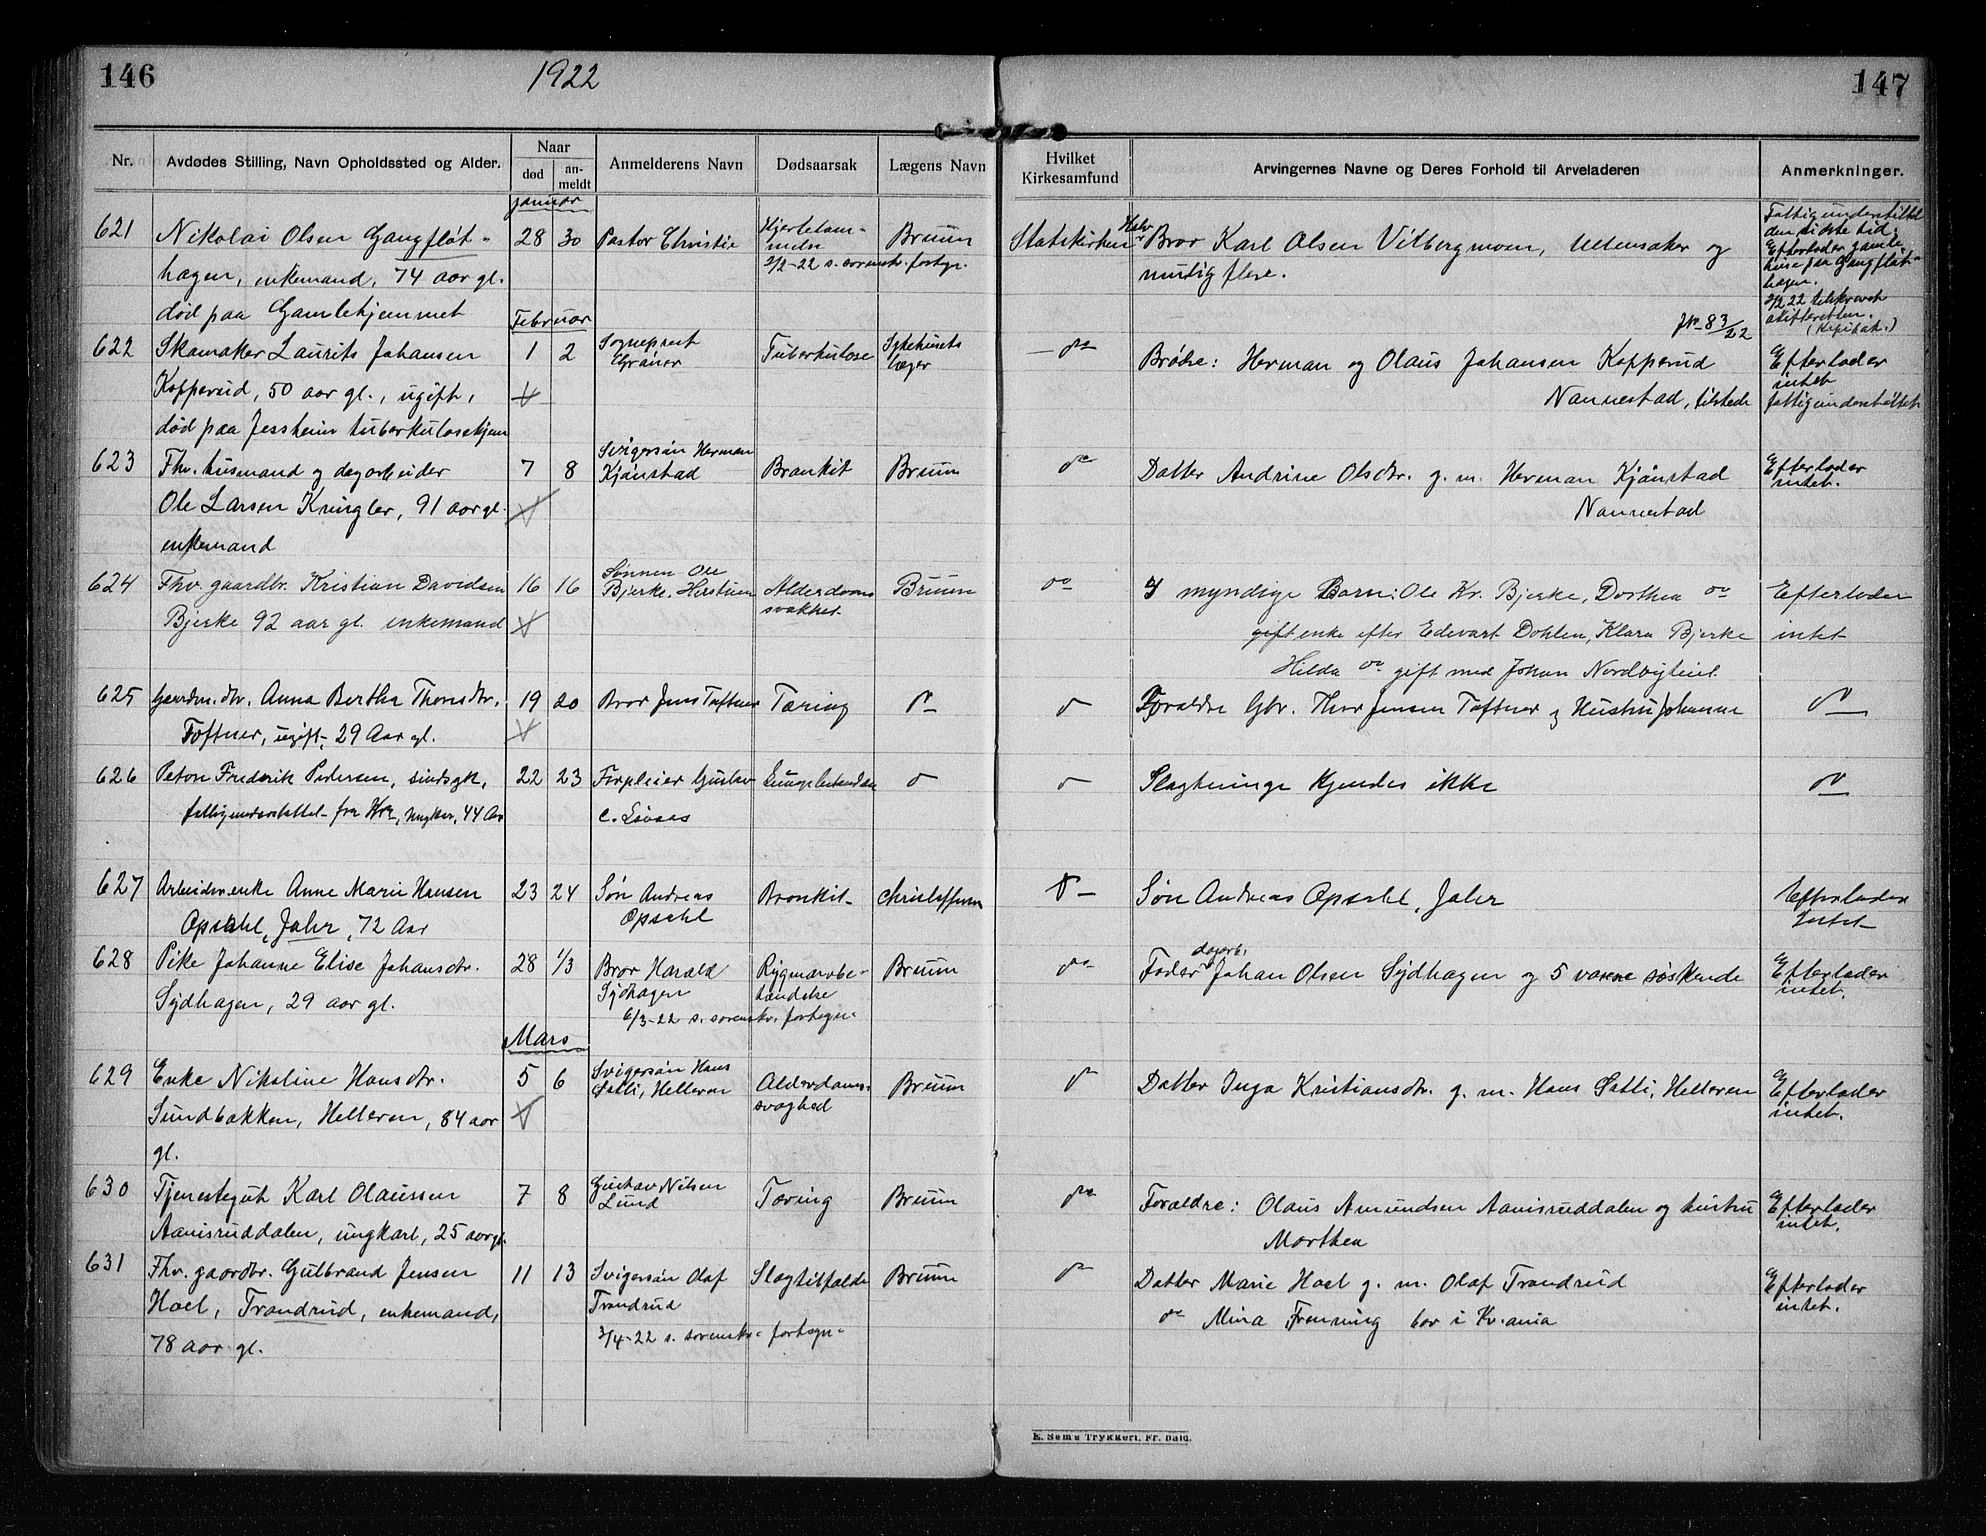 146
1922
147
Nr.
Avdødes Stilling, Navn Opholdssted og Alder.
Naar
død
an-
meldt
Anmelderens Navn
Dødsaarsak
Lægens Navn
Hvilket
Kirkesamfund
Arvingernes Navne og Deres Forhold til Arveladeren
Anmerkninger.
Januar
621 Nikolai Olsen Gangfløt- 28 30 Pastor Christie Hjertelam- Bruun Statskirken Halv- Bror Karl Olsen Vilbergmoen, Ullensaker og Fattigunderstøttet
melse
den siste tid.
hagen, enkemand, 74 aar gl. 2/2-22 s. sorensk. fortegn. mulig flere. Efterlader gamle
huse paa Gangfløt-
hagen.
død paa Gamlehjemmet 2/2 22 tilskrevet
skifteretten.
Februar
Jr 83/22
622 Skomaker Laurits Johansen 1 2 Sogneprest Tuberkulose Sykehusets —"— Brødre: Herman og Olaus Johansen Kopperud Efterlader
Grøner læger intet
Kopperud, 50 aar gl., ugift, Nannestad, tilstede fattigunderstøttet
død paa Jessheim tuberkulosehjem
623 Fhv. husmand og dagarbeider 7 8 Svigersøn Herman Bronkit Bruun do Datter Andrine Olsdtr. g. m. Herman Kjønstad Efterlader
Kjønstad intet.
Ole Larsen Kringler, 91 aar gl. Nannestad
enkemand
624 Fhv. gaardbr. Kristian Davidsen 16 16 Sønnen Ole Alderdoms Bruun do 4 myndige Barn: Ole Kr. Bjerke, Dorthea do Efterlader
Bjerke 92 aar gl. enkemand Bjerke, svakhet gift enke efter Edevart Dohlen, Klara Bjerke intet
Hilda do gift med Johan Nordbyteiet
625 Gaardm. dtr. Anna Bertha Thorsdtr. 19 20 Bror Jens Toftner Tæring do do Forældre Gbr. Thor Jensen Toftner og Hustru Johanne do
Toftner, ugift, 29 Aar gl.
626 Peton Fredrik Pedersen, sindsyk, 22 23 Forpleier Gustav do do Slagtninge kjendes ikke do
fattigunderstøttet fra Kra, ungkar, 44 Aar
627 Arbeiderenke Anne Marie Hansen 23 24 Søn Andreas Bronkit do Søn Andreas Opsahl, Jahr Efterlader
Opsahl, Jahr, 72 Aar Opsahl Intet
628 Pike Johanne Elise Johansdtr. 28 1/3 Bror Harald Rygmarvbe- Bruun do Fader dagarb. Johan Olsen Sydhagen og 5 voxne søskende Efterlader
Sydhagen, 29 aar gl. Sydhagen tændelse intet.
6/3-22 s. sorenskr. fortegn.
Mars
629 Enke Nikoline Hansdtr. 5 6 Svigersøn Hans Alderdoms- Bruun do Datter Inga Kristiansdtr. g. m. Hans Sætli, Helleren Efterlader
Sundbakken, Helleren, 84 aar Sætli, Helleren svaghed intet.
gl.
630 Tjenestegut Karl Olaussen 7 8 Gustav Nilsen Tæring Bruun do Forældre: Olaus Amundsen Aamisruddalen og hustru Efterlader
Aamisruddalen, ungkarl, 25 aar gl. Lund Marthea intet.
631 Fhv. gaardbr. Gulbrand Jensen 11 13 Svigersøn Olaf Slagtilfælde Bruun do Datter Marie Hoel g. m. Olaf Trandrud Efterlader
Hoel, Trandrud, enkemand, Trandrud do Mina Frenning bor i Kr.ania intet.
78 aar gl. 3/4-22 s. sorensk. fortegn.
E. Sem's Trykkeri, Fr.hald.